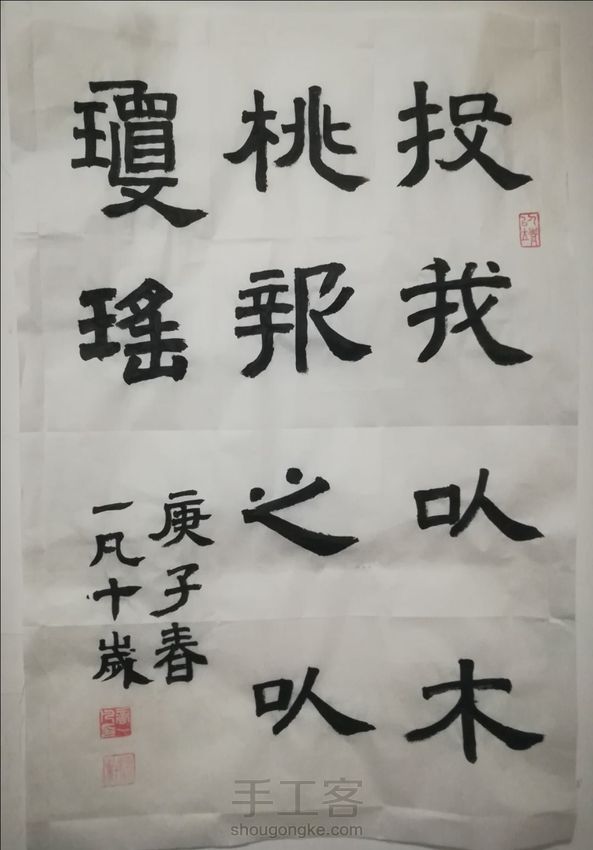 投我以木
桃報之以
瓊瑤
庚子春
一凡十歲
手工客
shougongke.com